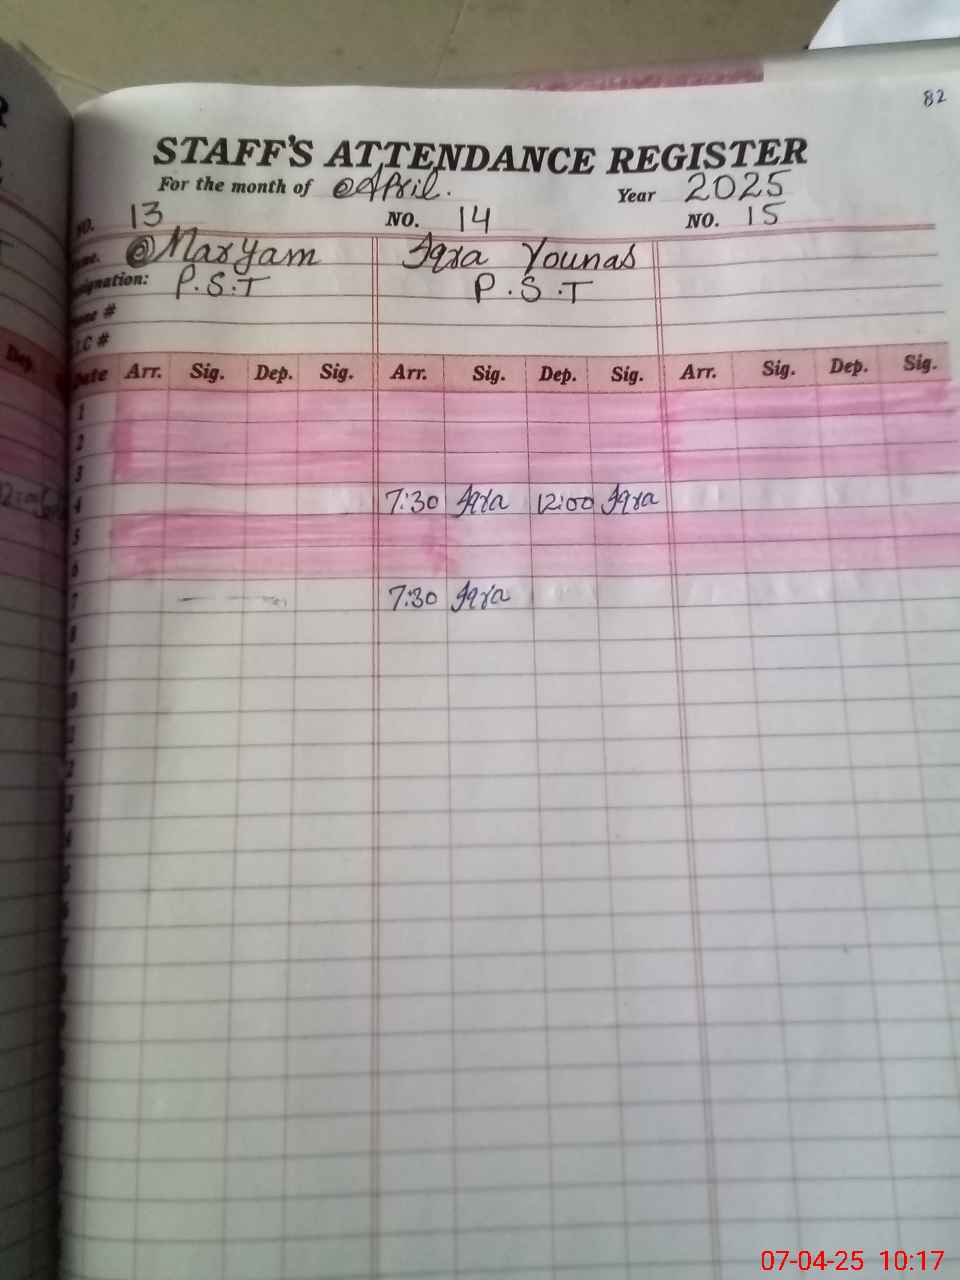 82
STAFF'S ATTENDANCE REGISTER
For the month of April. Year 2025
NO. 13 NO. 14 NO. 15
Maryam Iqra Younas
P.S.T P.S.T
Date Arr. Sig. Dep. Sig. Arr. Sig. Dep. Sig. Arr. Sig. Dep. Sig.
1
2
3
4 7:30 Iqra 12:00 Iqra
5
6
7 7:30 Iqra
8
9
07-04-25 10:17